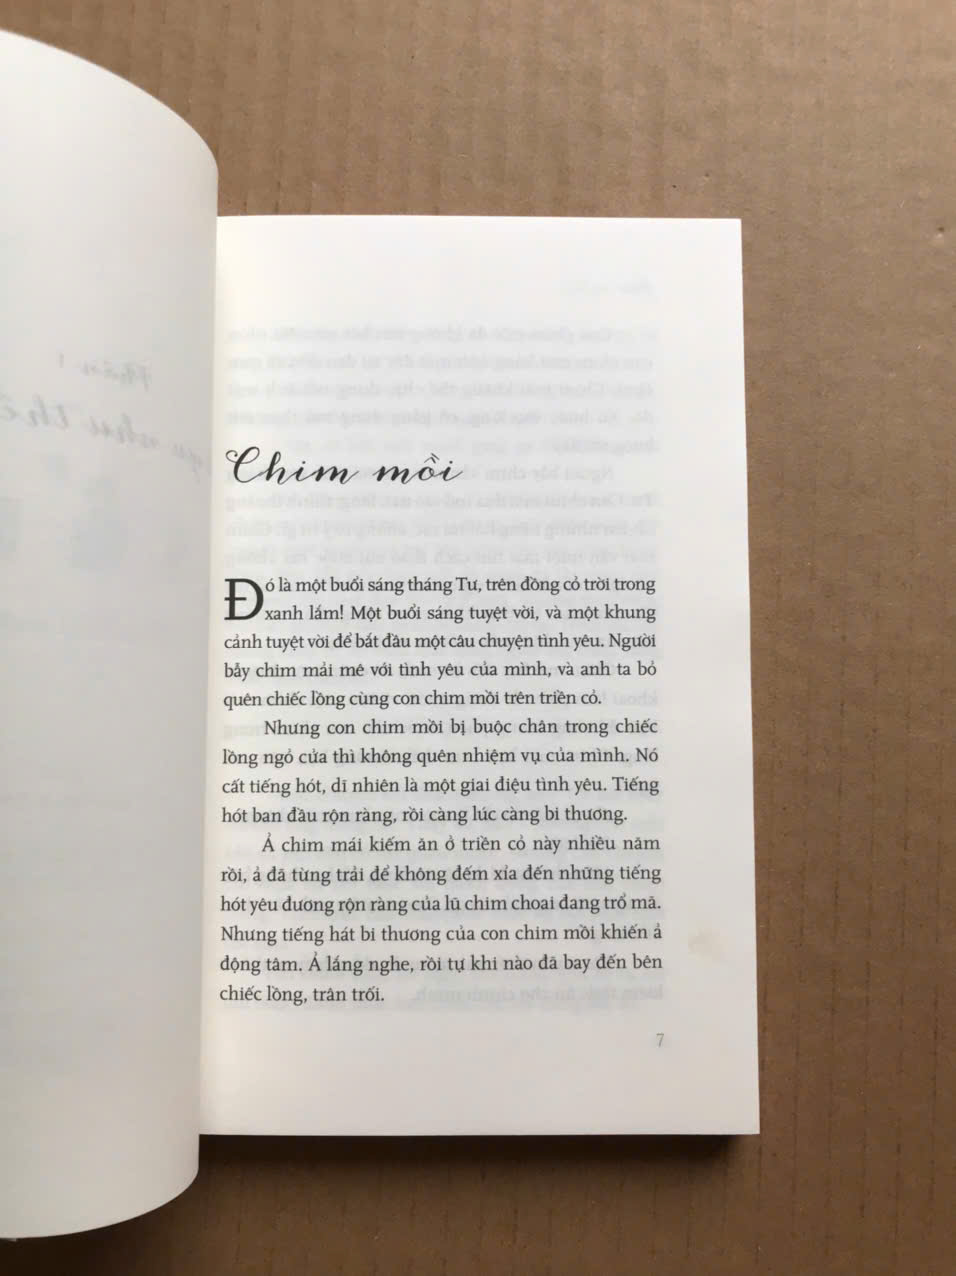 Phần 1
như thế
Chim mồi
Đó là một buổi sáng tháng Tư, trên đồng cỏ trời trong
xanh lắm! Một buổi sáng tuyệt vời, và một khung
cảnh tuyệt vời để bắt đầu một câu chuyện tình yêu. Người
bẫy chim mải mê với tình yêu của mình, và anh ta bỏ
quên chiếc lồng cùng con chim mồi trên triền cỏ.
Nhưng con chim mồi bị buộc chân trong chiếc
lồng ngỏ cửa thì không quên nhiệm vụ của mình. Nó
cất tiếng hót, dĩ nhiên là một giai điệu tình yêu. Tiếng
hót ban đầu rộn ràng, rồi càng lúc càng bi thương.
Ả chim mái kiếm ăn ở triền cỏ này nhiều năm
rồi, ả đã từng trải để không đếm xỉa đến những tiếng
hót yêu đương rộn ràng của lũ chim choai đang trổ mã.
Nhưng tiếng hát bi thương của con chim mồi khiến ả
động tâm. Ả lắng nghe, rồi tự khi nào đã bay đến bên
chiếc lồng, trân trối.
7